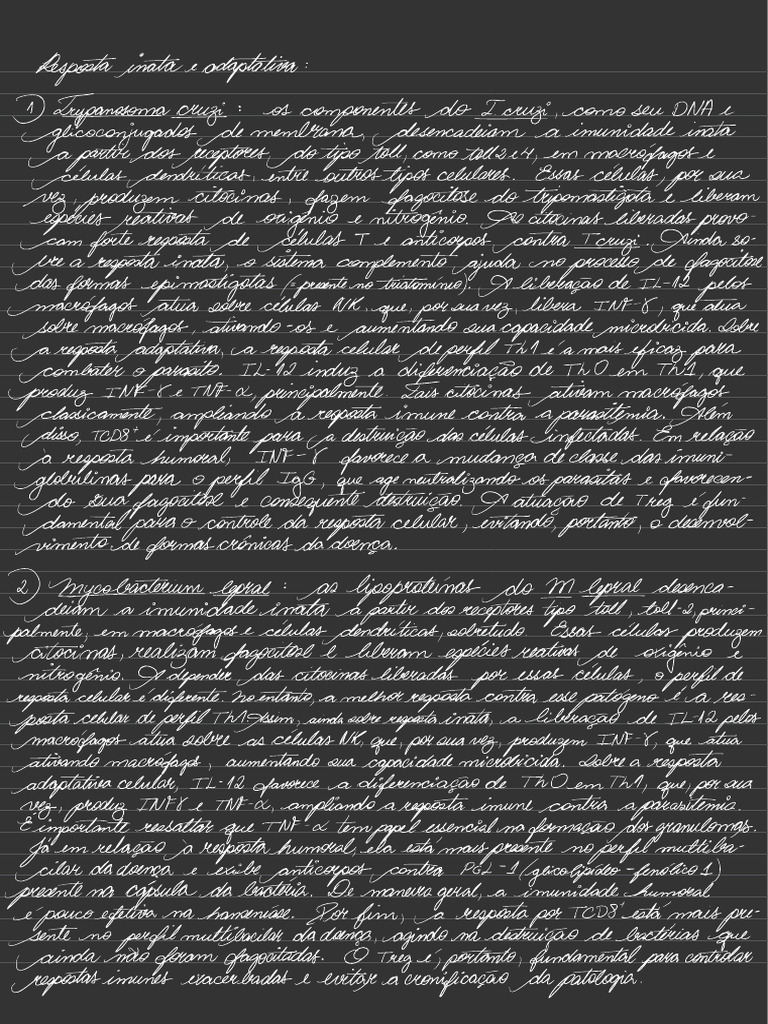 Resposta inata e adaptativa:
1) Trypanosoma cruzi: os componentes do T cruzi, como seu DNA e
glicoconjugados de membrana, desencadeiam a imunidade inata
a partir dos receptores do tipo toll, como toll 2 e 4, em macrófagos e
células dendríticas, entre outros tipos celulares. Essas células, por sua
vez, produzem citocinas, fazem fagocitose do tripomastigota e liberam
espécies reativas de oxigênio e nitrogênio. As citocinas liberadas provo-
cam forte resposta de células T e anticorpos contra T cruzi. Ainda so-
bre a resposta inata, o sistema complemento ajuda no processo de fagocitose
das formas epimastigotas (= presente no triatomínio). A liberação de IL-12 pelos
macrófagos atua sobre células NK, que, por sua vez, libera INF-γ, que atua
sobre macrófagos, ativando-os e aumentando sua capacidade microbicida. Sobre
a resposta adaptativa, a resposta celular de perfil Th1 é a mais eficaz para
combater o parasito. IL-12 induz a diferenciação de Th0 em Th1, que
produz INF-γ e TNF-α, principalmente. Tais citocinas ativam macrófagos
classicamente, ampliando a resposta imune contra a parasitemia. Além
disso, TCD8⁺ é importante para a destruição das células infectadas. Em relação
à resposta humoral, INF-γ favorece a mudança de classe das imuni-
globulinas para o perfil IgG, que age neutralizando os parasitas e favorecen-
do sua fagocitose e consequente destruição. A atuação de Treg é fun-
damental para o controle da resposta celular, evitando, portanto, o desenvol-
vimento de formas crônicas da doença.
2) Mycobacterium lepral: as lipoproteínas do M lepral desenca-
deiam a imunidade inata a partir dos receptores tipo toll, toll-2, princi-
palmente, em macrófagos e células dendríticas, sobretudo. Essas células produzem
citocinas, realizam fagocitose e liberam espécies reativas de oxigênio e
nitrogênio. A depender das citocinas liberadas por essas células, o perfil de
resposta celular é diferente. No entanto, a melhor resposta contra esse patógeno é a res-
posta celular de perfil Th1. Assim, ainda sobre resposta inata, a liberação de IL-12 pelos
macrófagos atua sobre as células NK, que, por sua vez, produzem INF-γ, que atua
ativando macrófagos, aumentando sua capacidade microbicida. Sobre a resposta
adaptativa celular, IL-12 favorece a diferenciação de Th0 em Th1, que, por sua
vez, produz INFγ e TNF-α, ampliando a resposta imune contra a parasitemia.
É importante ressaltar que TNF-α tem papel essencial na formação dos granulomas.
Já em relação à resposta humoral, ela está mais presente no perfil multiba-
cilar da doença e exibe anticorpos contra PGL-1 (glicolipídeo-fenólico 1)
presente na cápsula da bactéria. De maneira geral, a imunidade humoral
é pouco efetiva na hanseníase. Por fim, a resposta por TCD8⁺ está mais pre-
sente no perfil multibacilar da doença, agindo na destruição de bactérias que
ainda não foram fagocitadas. O Treg é, portanto, fundamental para controlar
respostas imunes exacerbadas e evitar a cronificação da patologia.